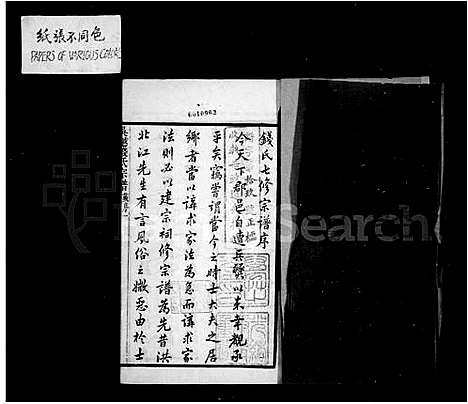 紙張不同色
PAPERS OF VARIOUS COLORS
錢氏七修宗譜序
今天下郡邑自遭兵燹以來幸觀承
平矣竊嘗謂當今之時士大夫之居
鄉者當以講求家法為急而講求家
法則必以建宗祠修宗譜為先昔洪
北江先生有言風俗之敝惡由於士
Search